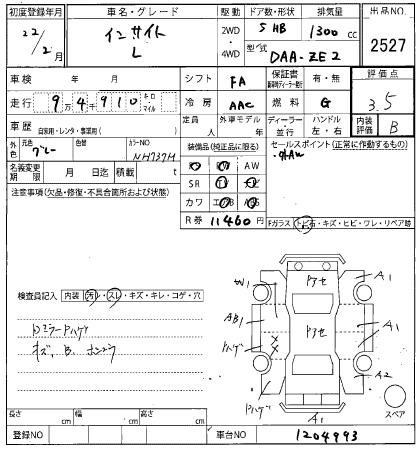 初度登録年月 車名・グレード 駆動 ドア数・形状 排気量 出品NO
22/2月 インサイト L 2WD・4WD 5 HB 1300cc 2527
型/式 DAA-ZE2
車検 年 月 シフト FA 保証書 有・無 評価点
走行 9万4千910 キロ・マイル 冷房 AAC 燃料 G 3.5
車歴 自家用・レンタ・事業用( ) 定員 人 外車モデル 年 ディーラー・並行 ハンドル 左・右 内装評価 B
外色 元色 グレー 色替 カラーNO NH737M 装備品(純正品に限る) セールスポイント(正常に作動するもの)
名義変更期限 月 日迄 積載 t AW
SR
注意事項(欠品・修復・不具合箇所および状態) カワ
R券 11460円 Fガラス トビ石・キズ・ヒビ・ワレ・リペア跡
検査員記入 内装 汚レ・スレ・キズ・キレ・コゲ・穴
ドアミラーハゲ
キズ、B、
W1 アセ A1
AB1 アセ A1
ハゲ A2
ハゲ A1 スペア
長さ cm 幅 cm 高さ cm
登録NO 車台NO 1204993